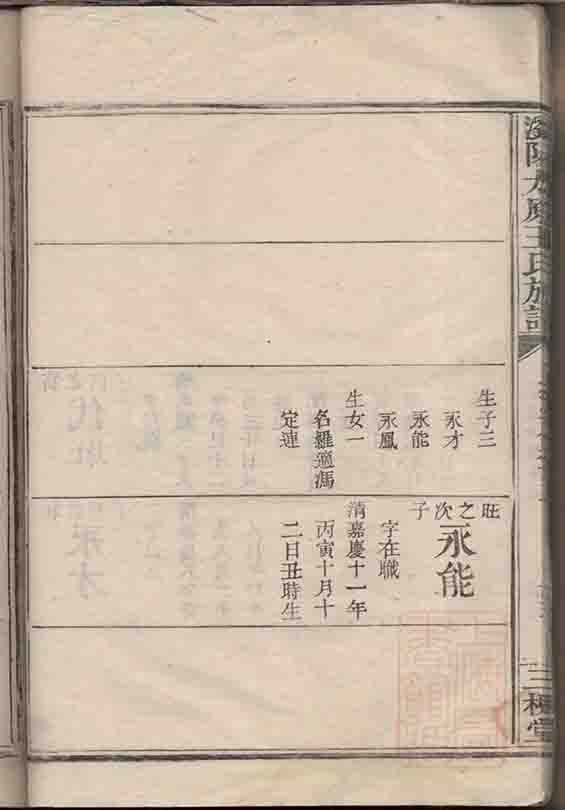 瀏陽太原王氏族譜
三槐堂
生子三
永才
永能
永鳳
生女一
名羅適馮
定連
旺之次子
永能
字在職
清嘉慶十一年
丙寅十月十
二日丑時生